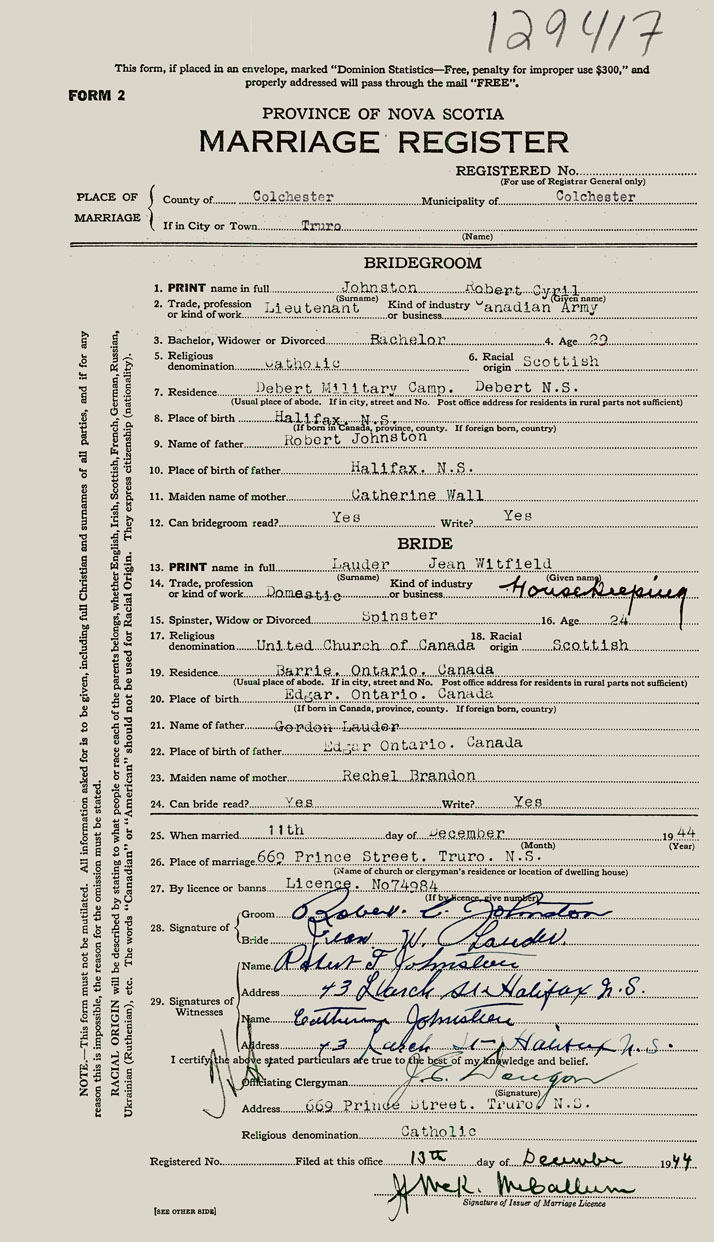 129417
This form, if placed in an envelope, marked "Dominion Statistics—Free, penalty for improper use $300," and
properly addressed will pass through the mail "FREE".
FORM 2
PROVINCE OF NOVA SCOTIA
MARRIAGE REGISTER
REGISTERED No.
(For use of Registrar General only)
PLACE OF MARRIAGE
County of Colchester Municipality of Colchester
If in City or Town Truro
(Name)
BRIDEGROOM
1. PRINT name in full Johnston Robert Cyril
(Surname) (Given name)
2. Trade, profession or kind of work Lieutenant Kind of industry or business Canadian Army
3. Bachelor, Widower or Divorced Bachelor 4. Age 29
5. Religious denomination Catholic 6. Racial origin Scottish
7. Residence Debert Military Camp. Debert N.S.
(Usual place of abode. If in city, street and No. Post office address for residents in rural parts not sufficient)
8. Place of birth Halifax. N.S.
(If born in Canada, province, county. If foreign born, country)
9. Name of father Robert Johnston
10. Place of birth of father Halifax. N.S.
11. Maiden name of mother Catherine Wall
12. Can bridegroom read? Yes Write? Yes
BRIDE
13. PRINT name in full Lauder Jean Witfield
(Surname) (Given name)
14. Trade, profession or kind of work Domestic Kind of industry or business Housekeeping
15. Spinster, Widow or Divorced Spinster 16. Age 24
17. Religious denomination United Church of Canada 18. Racial origin Scottish
19. Residence Barrie. Ontario. Canada
(Usual place of abode. If in city, street and No. Post office address for residents in rural parts not sufficient)
20. Place of birth Edgar. Ontario. Canada
(If born in Canada, province, county. If foreign born, country)
21. Name of father Gordon Lauder
22. Place of birth of father Edgar Ontario. Canada
23. Maiden name of mother Rechel Brandon
24. Can bride read? Yes Write? Yes
25. When married 11th day of December 1944
(Month) (Year)
26. Place of marriage 669 Prince Street. Truro. N.S.
(Name of church or clergyman's residence or location of dwelling house)
27. By licence or banns Licence. No74984
(If by licence, give number)
28. Signature of
Groom Robert C. Johnston
Bride Jean W. Lauder.
29. Signatures of Witnesses
Name Robert T Johnston
Address 43 Larch St Halifax N.S.
Name Catherine Johnston
Address 43 Larch St Halifax N.S.
I certify the above stated particulars are true to the best of my knowledge and belief.
Officiating Clergyman J.E.
(Signature)
Address 669 Prince Street. Truro. N.S.
Religious denomination Catholic
Registered No. Filed at this office 13th day of December 1944
McK. McCallum
Signature of Issuer of Marriage Licence
[SEE OTHER SIDE]
NOTE.—This form must not be mutilated. All information asked for is to be given, including full Christian and surnames of all parties, and if for any
reason this is impossible, the reason for the omission must be stated.
RACIAL ORIGIN will be described by stating to what people or race each of the parents belongs, whether English, Irish, Scottish, French, German, Russian,
Ukrainian (Ruthenian), etc. The words "Canadian" or "American" should not be used for Racial Origin. They express citizenship (nationality).